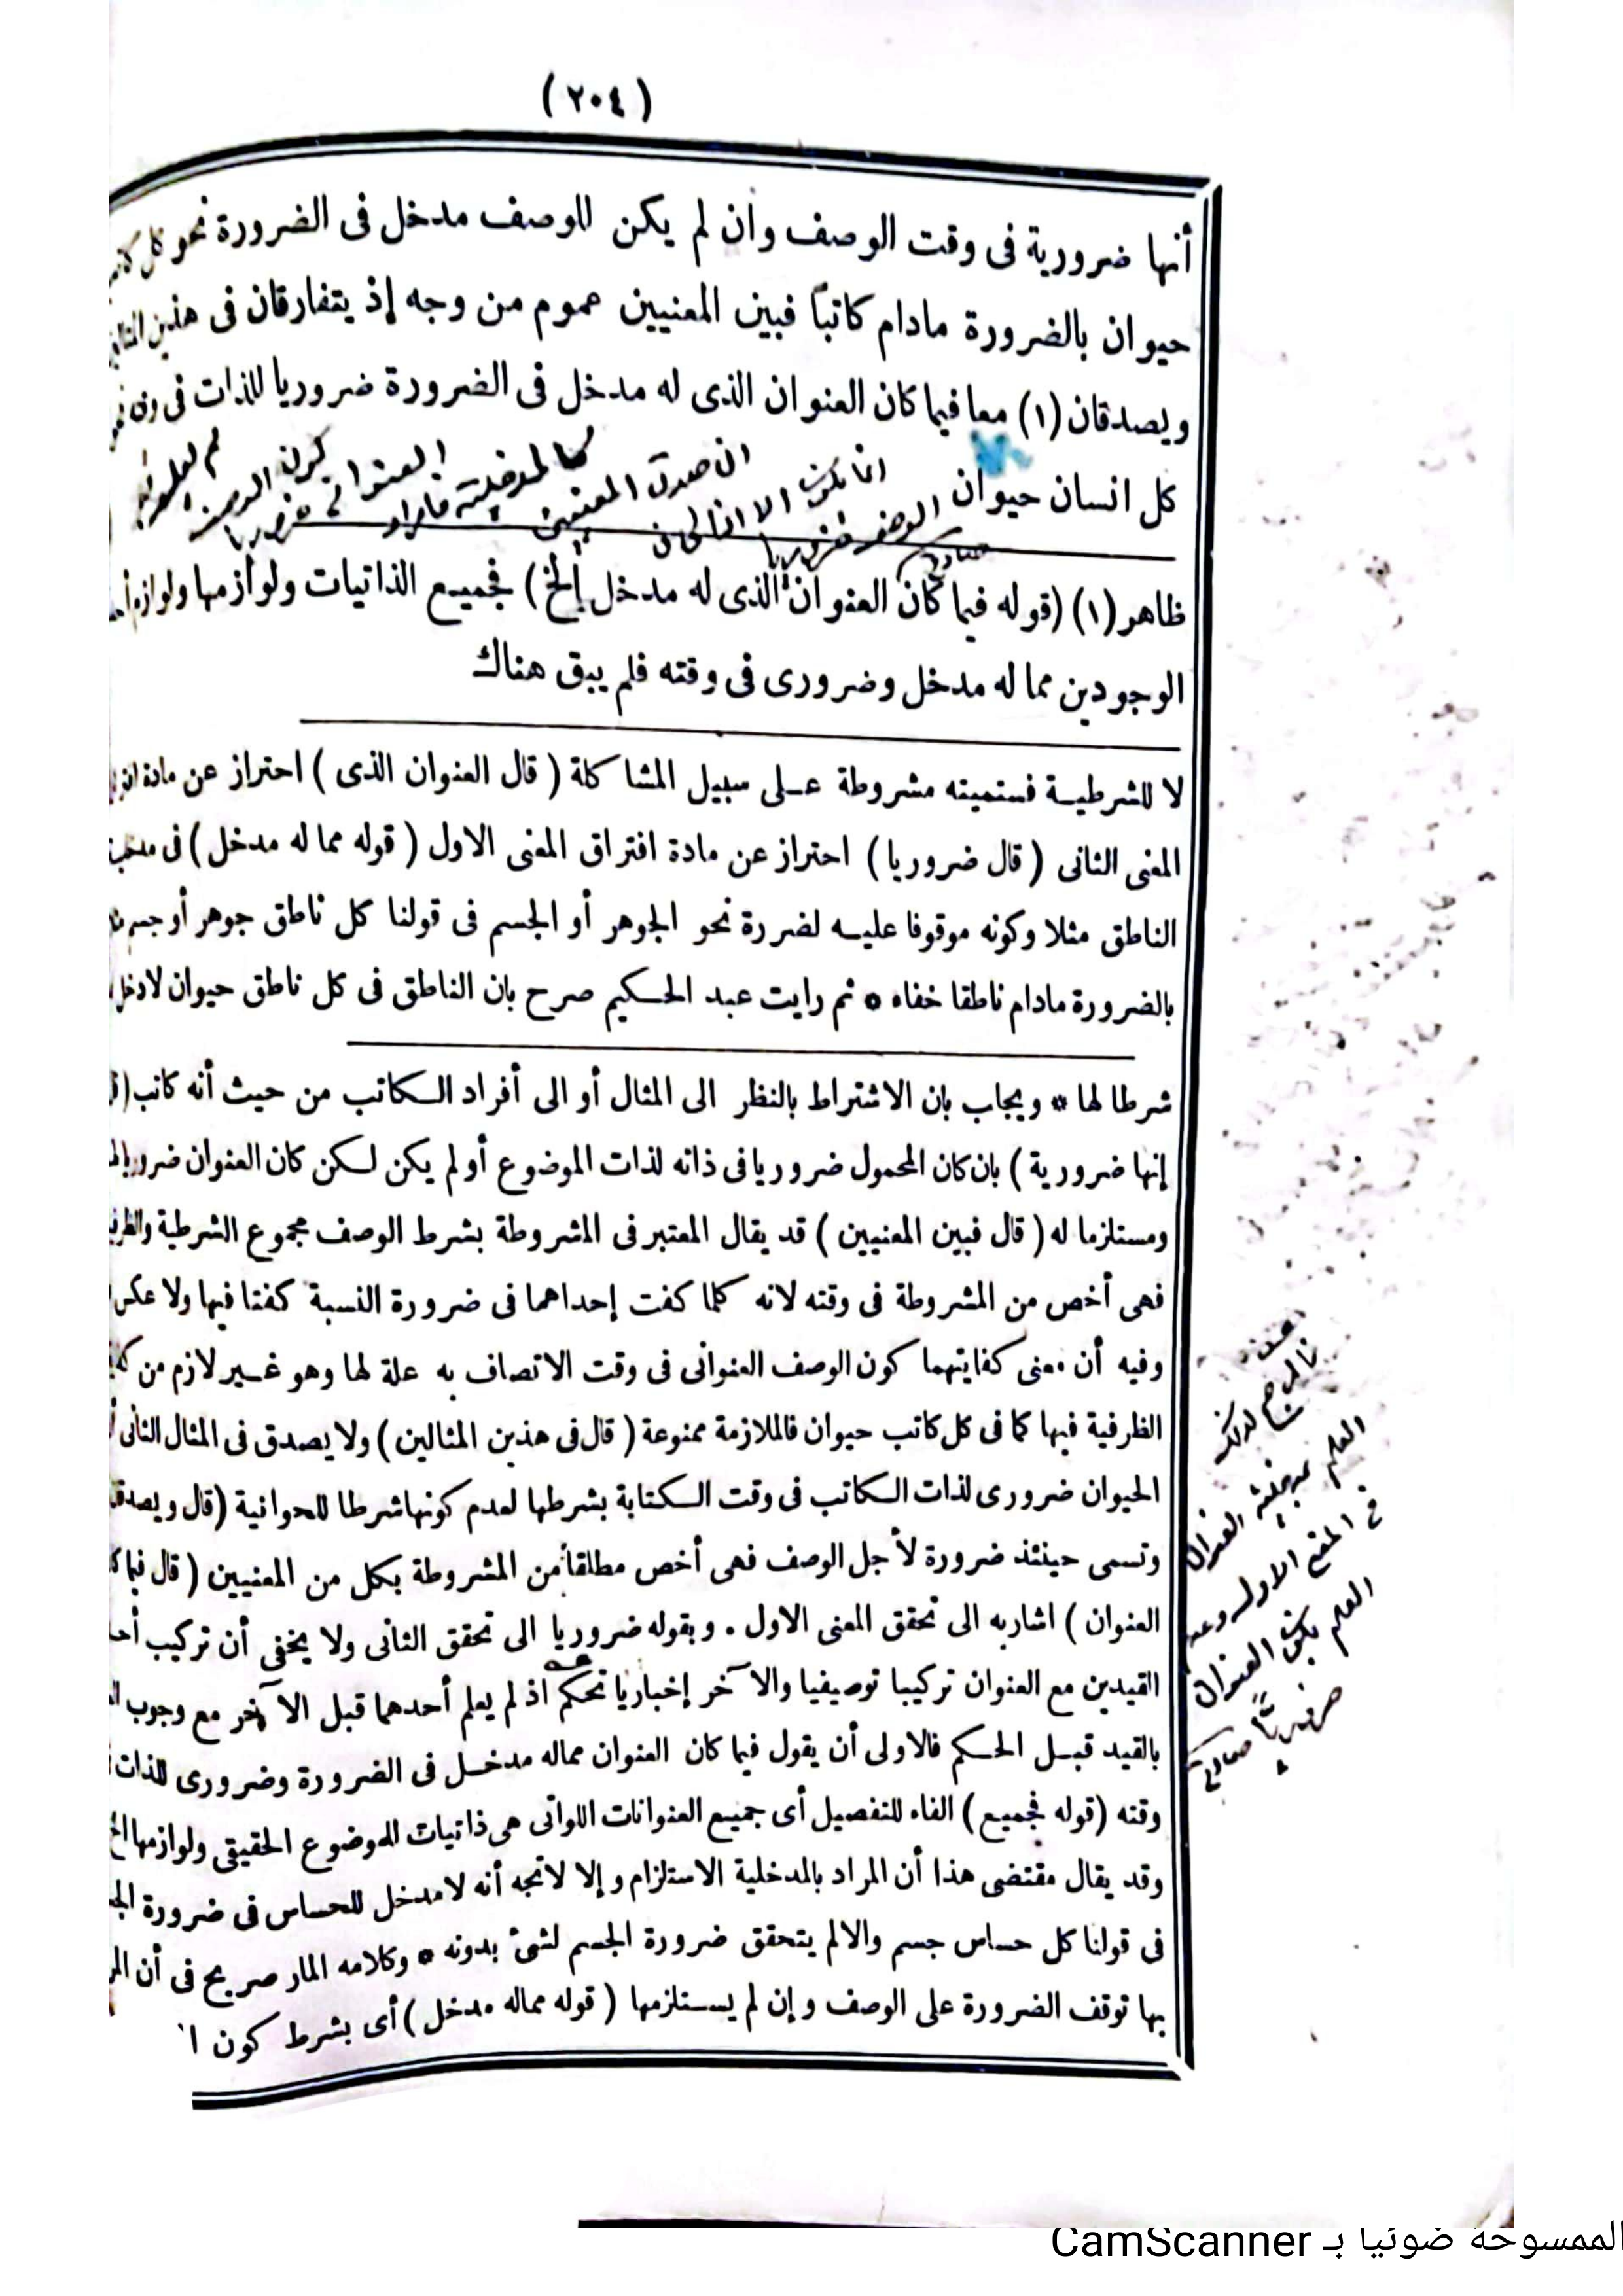 (٢٠٤)
أنها ضرورية فى وقت الوصف وان لم يكن للوصف مدخل فى الضرورة نحو كل
حيوان بالضرورة مادام كاتباً فبين المعنيين عموم من وجه إذ يتفارقان فى هذين
ويصدقان (١) معا فيما كان العنوان الذى له مدخل فى الضرورة ضروريا للذات فى
كل انسان حيوان
ظاهر (١) (قوله فيما كان العنوان الذى له مدخل إلخ) فجميع الذاتيات ولوازمها
الوجودين مما له مدخل وضرورى فى وقته فلم يبق هناك
لا للشرطية فستميته مشروطة على سبيل المشاكلة ( قال العنوان الذى ) احتراز عن مادة
المعنى الثانى ( قال ضروريا ) احتراز عن مادة افتراق المعنى الاول ( قوله مما له مدخل ) فى
الناطق مثلا وكونه موقوفا عليه لضررة نحو الجوهر أو الجسم فى قولنا كل ناطق جوهر أو جسم
بالضرورة مادام ناطقا خفاه * ثم رايت عبد الحكيم صرح بان الناطق فى كل ناطق حيوان لادخل
شرطا لها * ويجاب بان الاشتراط بالنظر الى المثال أو الى أفراد الكاتب من حيث أنه كاتب
إنها ضرورية ) بان كان المحمول ضروريا فى ذاته لذات الموضوع أو لم يكن لكن كان العنوان
ومستلزما له ( قال فبين المعنيين ) قد يقال المعتبر فى المشروطة بشرط الوصف مجموع الشرطية
فهى أخص من المشروطة فى وقته لانه كلما كفت إحداهما فى ضرورة النسبة كفتا فيها ولا عكس
وفيه أن معنى كفايتهما كون الوصف العنوانى فى وقت الاتصاف به علة لها وهو غير لازم من
الظرفية فيها كما فى كل كاتب حيوان فالملازمة ممنوعة ( قال فى هذين المثالين ) ولا يصدق فى المثال الثانى
الحيوان ضرورى لذات الكاتب فى وقت الكتابة بشرطها لعدم كونها شرطا للحوانية (قال
وتسمى حينئذ ضرورة لأجل الوصف فهى أخص مطلقا من المشروطة بكل من المعنيين ( قال
العنوان ) اشار به الى تحقق المعنى الاول . وبقوله ضروريا الى تحقق الثانى ولا يخفى أن تركيب
القيدين مع العنوان تركيبا توصيفيا والآخر إخباريا تحكم اذ لم يعلم أحدهما قبل الآخر مع وجوب
بالقيد قبل الحكم فالاولى أن يقول فيما كان العنوان مماله مدخل فى الضرورة وضرورى للذات
وقته (قوله فجميع) الفاء للتفصيل أى جميع العنوانات اللواتى هى ذاتيات للموضوع الحقيقى ولوازمها
وقد يقال مقتضى هذا أن المراد بالمدخلية الاستلزام وإلا لاتجه أنه لامدخل للحساس فى ضرورة
فى قولنا كل حساس جسم والالم يتحقق ضرورة الجسم لشئ بدونه * وكلامه المار صريح فى أن
بها توقف الضرورة على الوصف وإن لم يستلزمها ( قوله مماله مدخل ) أى بشرط كون
العلم بكون العنوان
الممسوحة ضوئيا بـ CamScanner